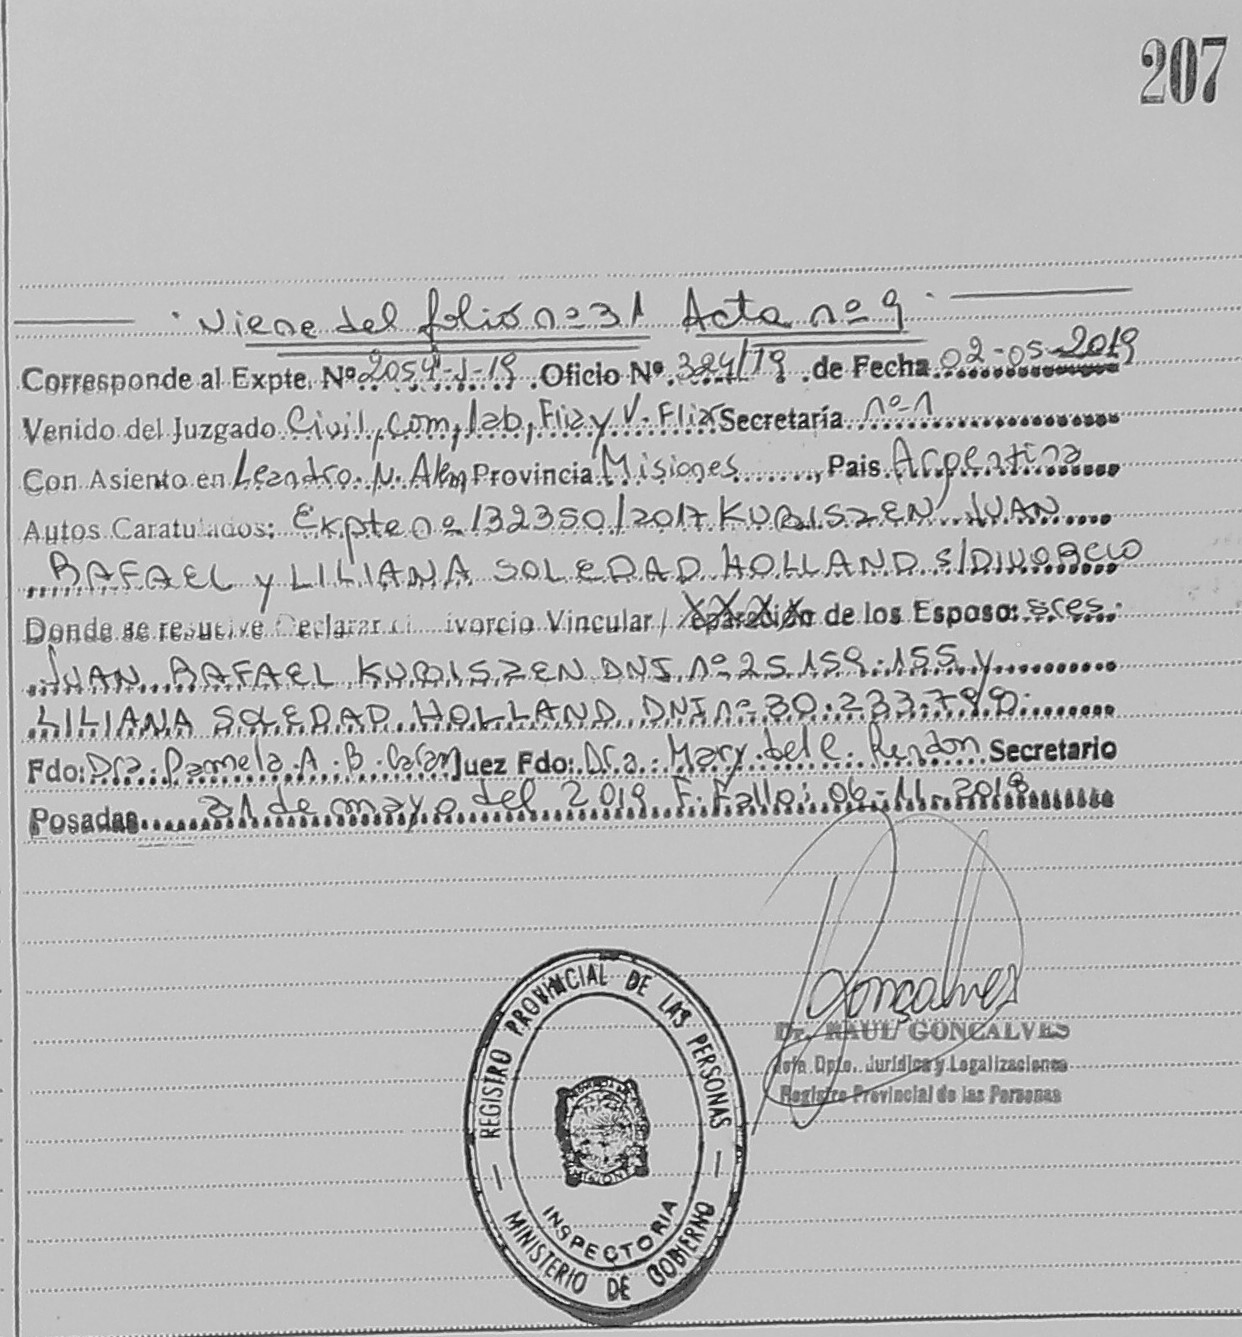 207
Viene del folio nº 31 Acta nº 9
Corresponde al Expte. Nº 2054-J-19. Oficio Nº. 324/19. de Fecha 02-05-2019
Venido del Juzgado Civil, Com, lab, Flia y V. Flia Secretaría nº-1
Con Asiento en Leandro. N. Alem Provincia Misiones, Pais. Argentina
Autos Caratulados: Expte nº 132350/2017 KUBISZEN JUAN
RAFAEL y LILIANA SOLEDAD HOLLAND S/DIVORCIO
Donde se resuelve Declarar ivorcio Vincular / de los Esposo: sres.
JUAN RAFAEL KUBISZEN DNI nº 25.159.155 y
LILIANA SOLEDAD HOLLAND DNI nº 30.233.799.
Fdo: Dra. Pamela A. B. Juez Fdo: Dra. Mary del C. Rendon Secretario
Posadas 31 de mayo del 2019 F. Fallo: 06-11-2018
Goncalves
Dr. RAUL GONCALVES
Jefe Dpto. Jurídica y Legalizaciones
Registro Provincial de las Personas
REGISTRO PROVINCIAL DE LAS PERSONAS
INSPECTORIA
MINISTERIO DE GOBIERNO